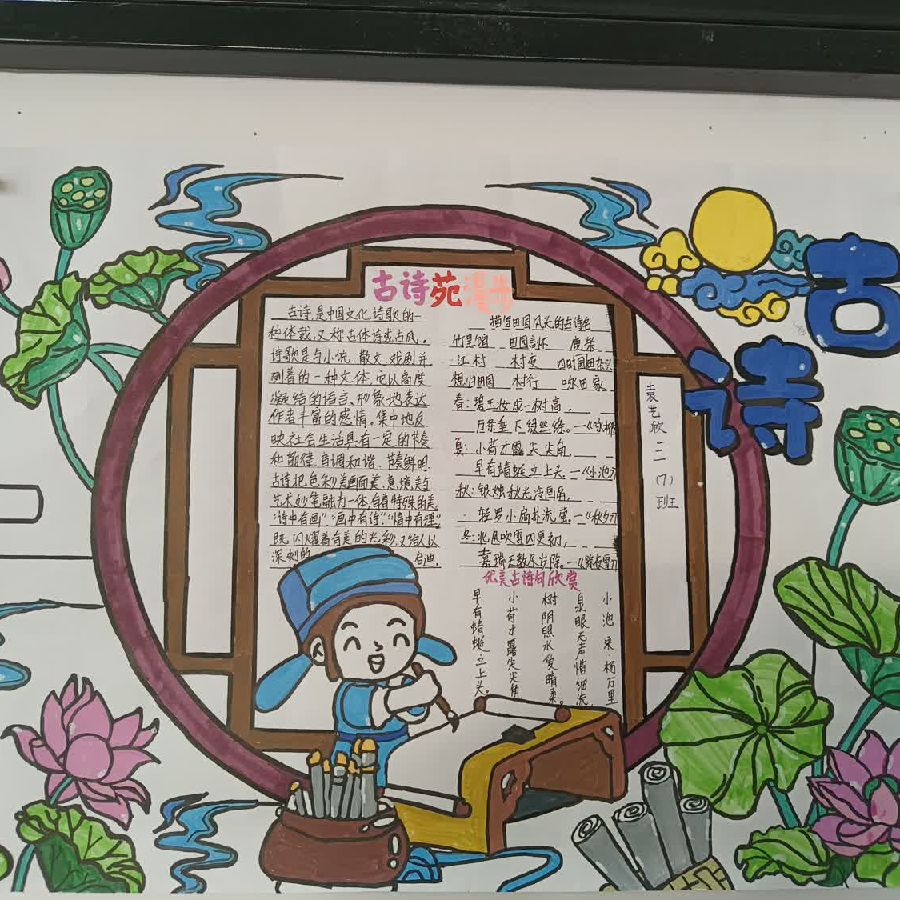 古诗
古诗苑漫步
古诗是中国文化诗歌的一
种体裁,又称古体诗或古风。
诗歌是与小说、散文、戏剧并
列着的一种文体,它以高度
凝结的语言、形象地表达
作者丰富的感情。集中地反
映社会生活具有一定的节奏
和韵律,音调和谐、节奏鲜明,
古诗把色彩美画面美、意境美与
艺术的笔融为一体,有着特殊的美
"诗中有画""画中有诗""情中有理"
既闪烁着有美的光彩,又给人以
深刻的
描写田园风光的古诗
竹里馆 田园言怀
江村 村夜
村行
春:碧玉妆成一树高,
万条垂下绿丝绦。
夏:小荷才露尖尖角,
早有蜻蜓立上头。—《小池》
秋:银烛秋光冷画屏,
轻罗小扇扑流萤。—《秋夕》
冬:
优美古诗句欣赏
小池 宋 杨万里
泉眼无声惜细流,
树阴照水爱晴柔。
小荷才露尖尖角
早有蜻蜓立上头。
袁艺欣 二(7)班